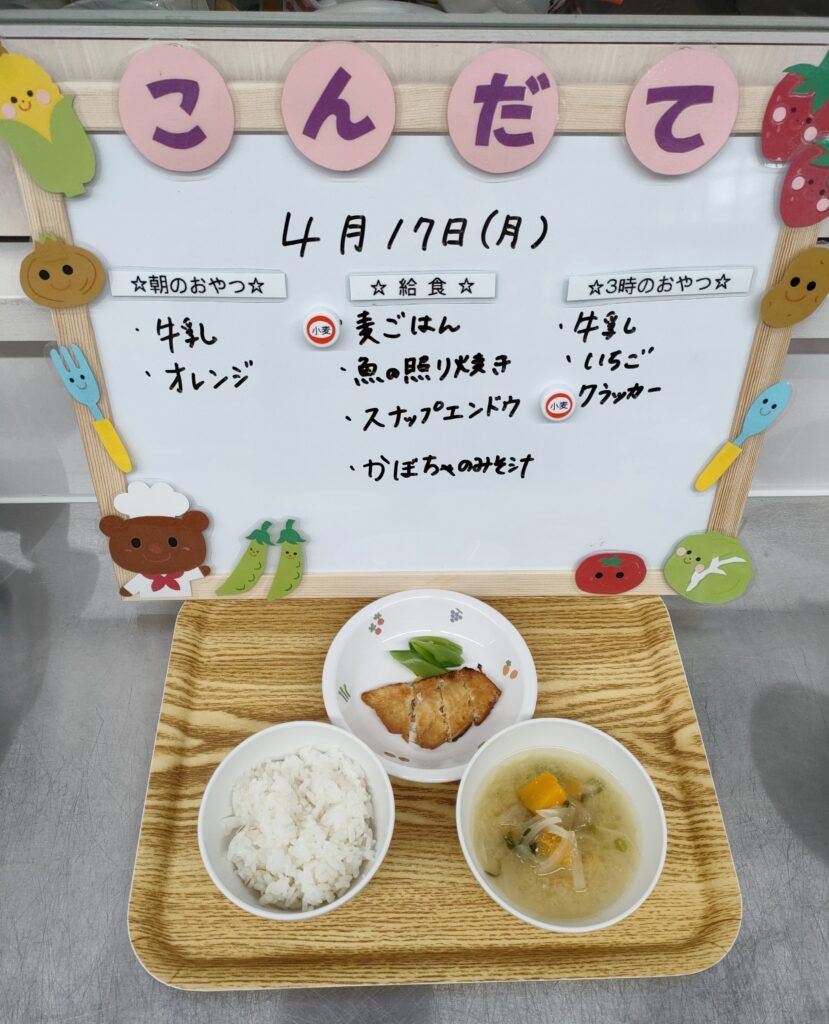 こんだて
4月17日(月)
☆朝のおやつ☆
・牛乳
・オレンジ
☆給食☆
小麦
・麦ごはん
・魚の照り焼き
・スナップエンドウ
・かぼちゃのみそ汁
☆3時のおやつ☆
・牛乳
・いちご
小麦
クラッカー